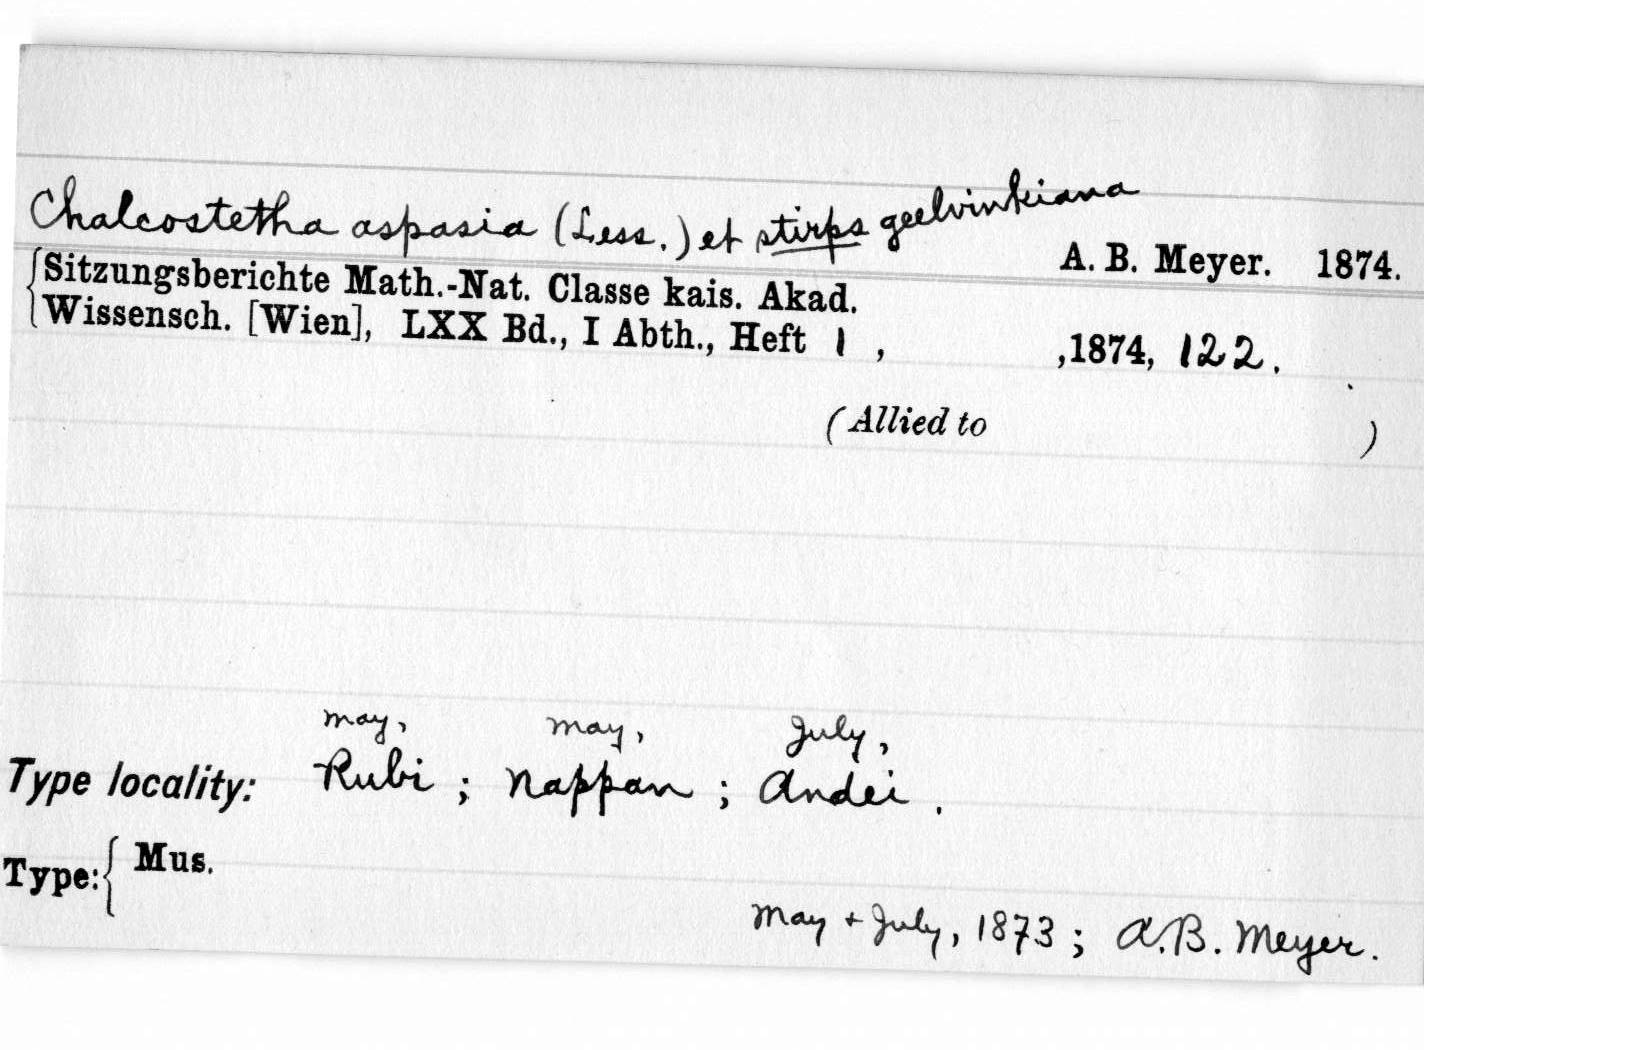 Chalcostetha aspasia (Less.) et stirps geelvinkiana
A. B. Meyer. 1874.
Sitzungsberichte Math.-Nat. Classe kais. Akad.
Wissensch. [Wien], LXX Bd., I Abth., Heft 1 , ,1874, 122.
(Allied to )
May, May, July,
Type locality: Rubi ; Nappan ; Andei .
Type: { Mus.
May + July, 1873 ; A.B. Meyer.